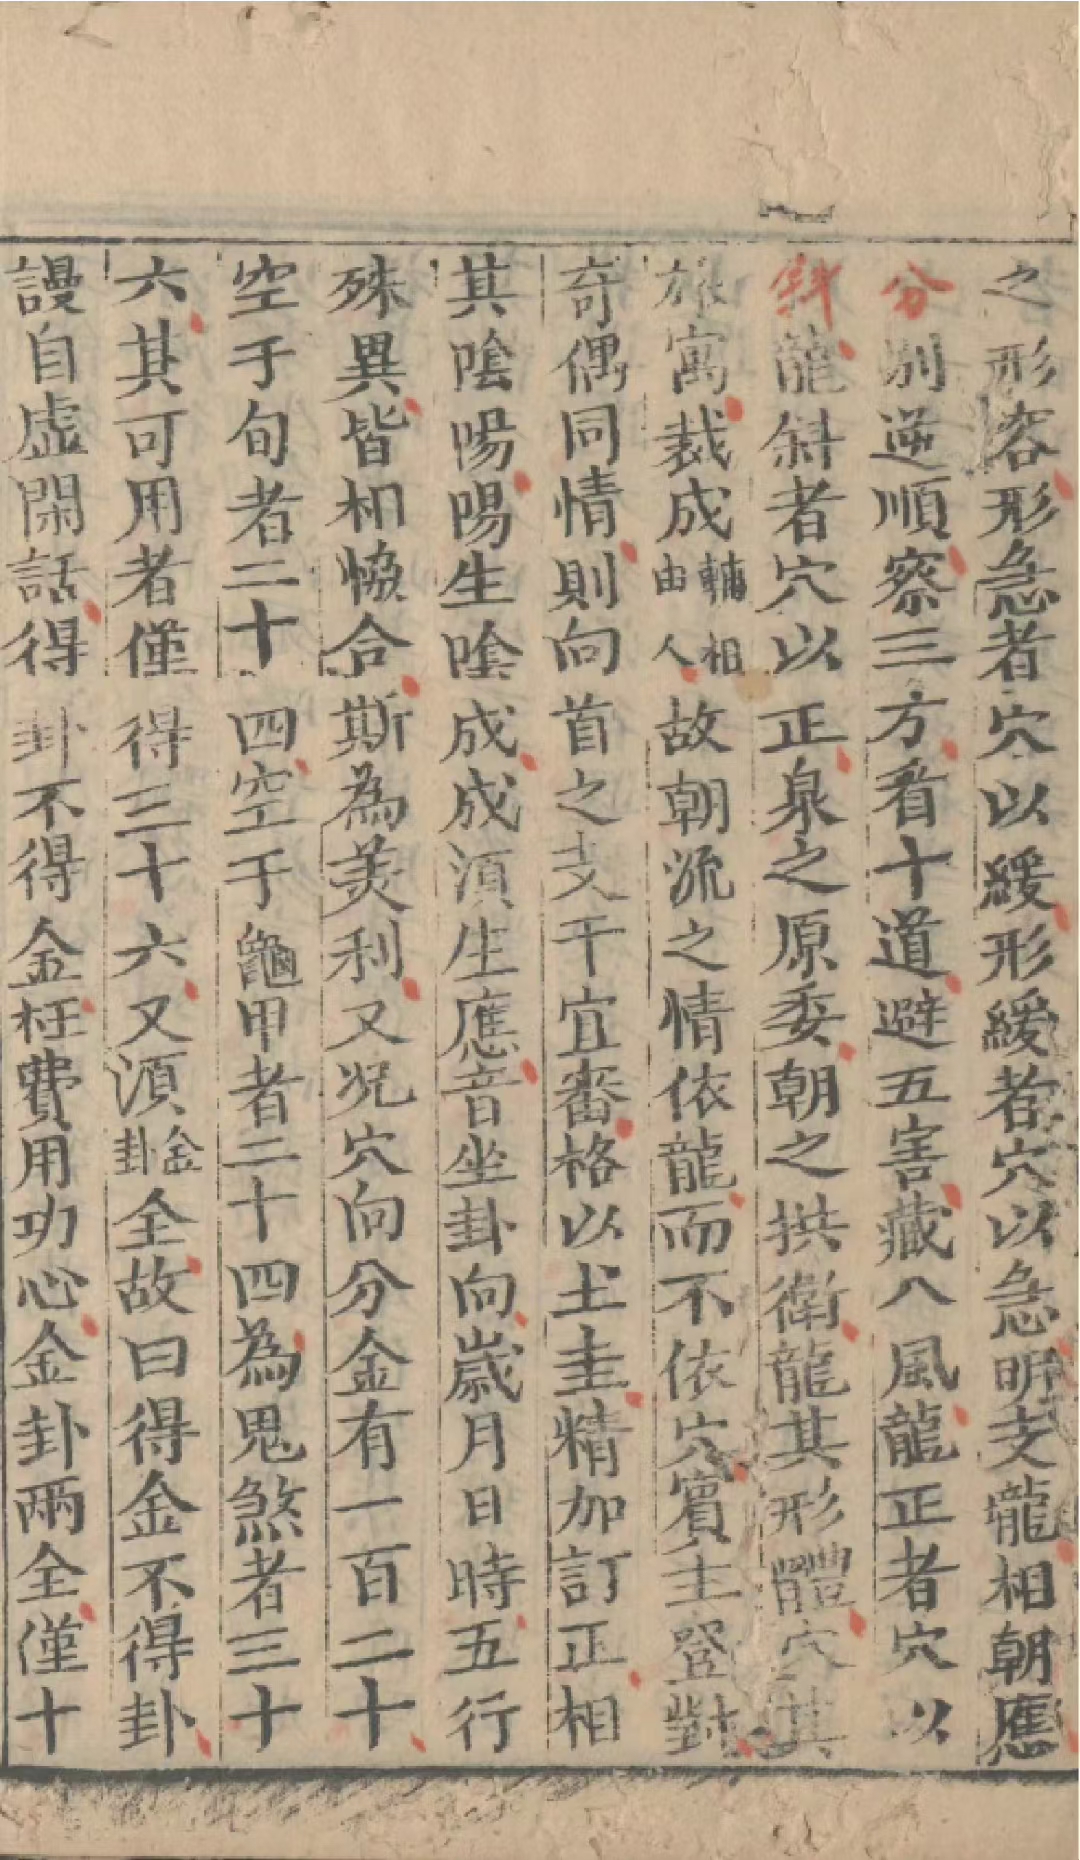 之形容形急者穴以緩形緩者穴以急明支壠相朝應
分別逆順察三方看十道避五害藏八風龍正者穴以
斜龍斜者穴以正泉之原委朝之拱衛龍其形體穴其
旅寓裁成輔相由人故朝流之情依龍而不依穴賓主登對
奇偶同情則向首之支干宜審格以土圭精加訂正相
其陰陽陽生陰成成須生應音坐卦向歲月日時五行
殊異皆相恊合斯為美利又况穴向分金有一百二十
空于旬者二十四空于龜甲者二十四為鬼煞者三十
六其可用者僅得三十六又須金卦全故曰得金不得卦
謾自虛閑話得卦不得金枉費用功心金卦兩全僅十